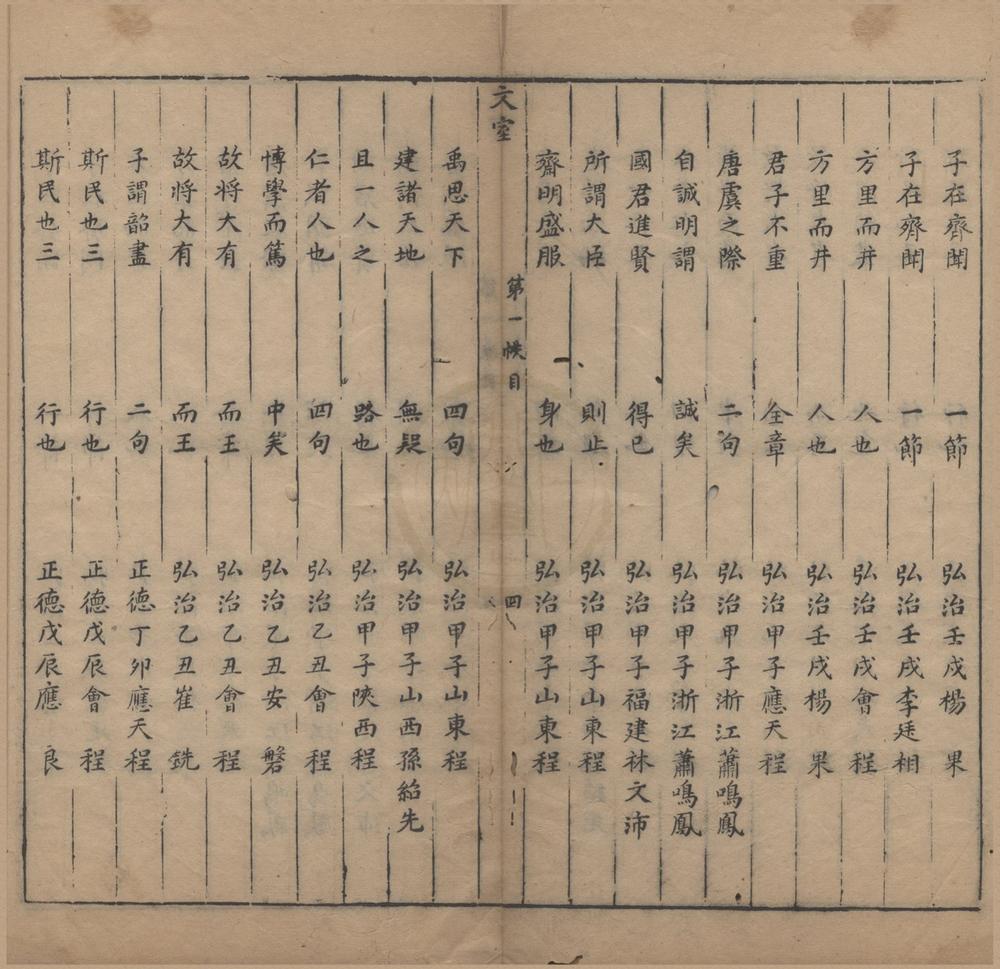 子在齊聞 一節 弘治壬戌楊 果
子在齊聞 一節 弘治壬戌李廷相
方里而井 人也 弘治壬戌會 程
方里而井 人也 弘治壬戌楊 果
君子不重 全章 弘治甲子應天程
唐虞之際 二句 弘治甲子浙江蕭鳴鳳
自誠明謂 誠矣 弘治甲子浙江蕭鳴鳳
國君進賢 得已 弘治甲子福建林文沛
所謂大臣 則止 弘治甲子山東程
齋明盛服 身也 弘治甲子山東程
文室 第一帙目 四
禹思天下 四句 弘治甲子山東程
建諸天地 無疑 弘治甲子山西孫紹先
且一人之 路也 弘治甲子陝西程
仁者人也 四句 弘治乙丑會 程
愽學而篤 中矣 弘治乙丑安 磐
故将大有 而王 弘治乙丑會 程
故将大有 而王 弘治乙丑崔 銑
子謂韶盡 二句 正德丁卯應天程
斯民也三 行也 正德戊辰會 程
斯民也三 行也 正德戊辰應 良